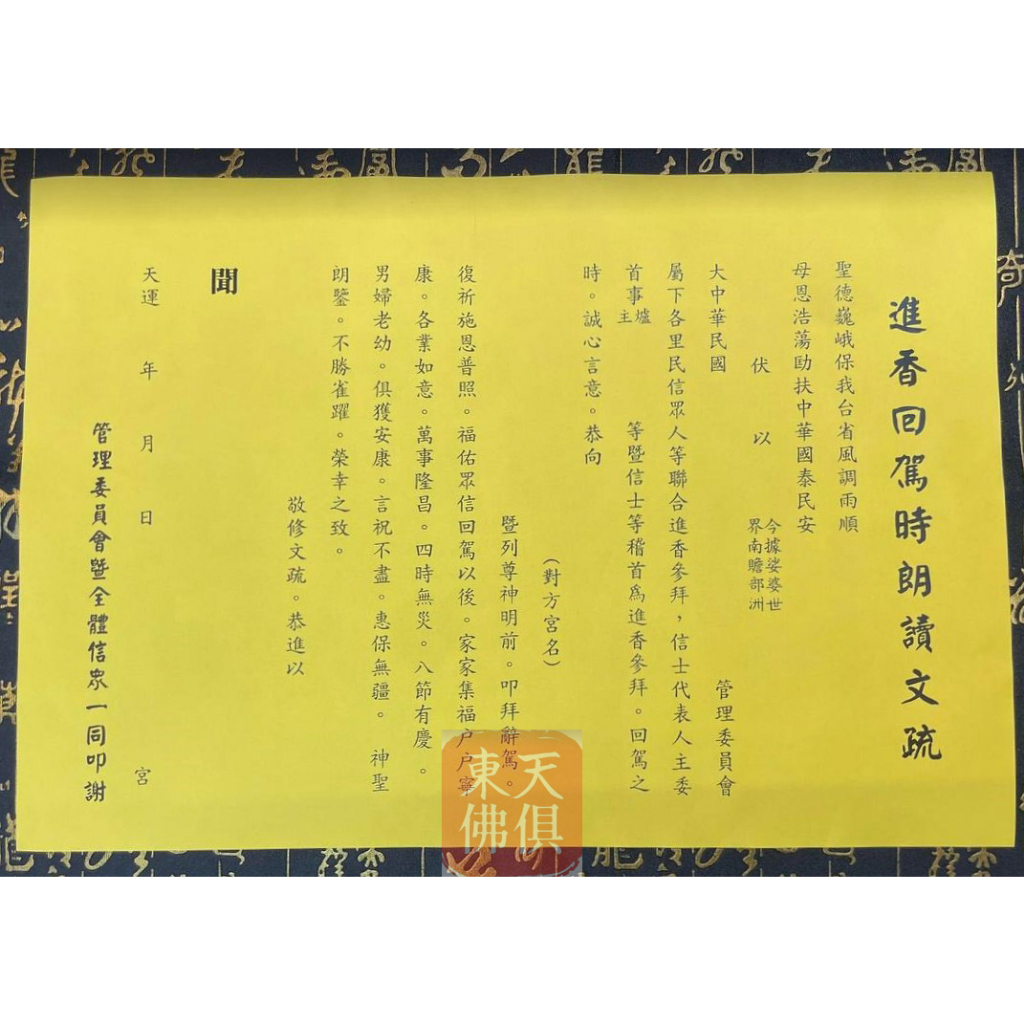 進香回駕時朗讀文疏
聖德巍峨保我台省風調雨順
母恩浩蕩劻扶中華國泰民安
伏以
今據娑婆世
界南瞻部洲
大中華民國 管理委員會
屬下各里民信眾人等聯合進香參拜，信士代表人主委
首事爐
主
等暨信士等稽首為進香參拜。回駕之
時。誠心言意。恭向
（對方宮名）
暨列尊神明前。叩拜辭駕。
復祈施恩普照。福佑眾信回駕以後。家家集福户户寧
康。各業如意。萬事隆昌。四時無災。八節有慶。
男婦老幼。俱獲安康。言祝不盡。惠保無疆。 神聖
朗鑒。不勝雀躍。榮幸之致。
敬修文疏。恭進以
聞
天運 年 月 日 宮
管理委員會暨全體信眾一同叩謝
天俱
東佛